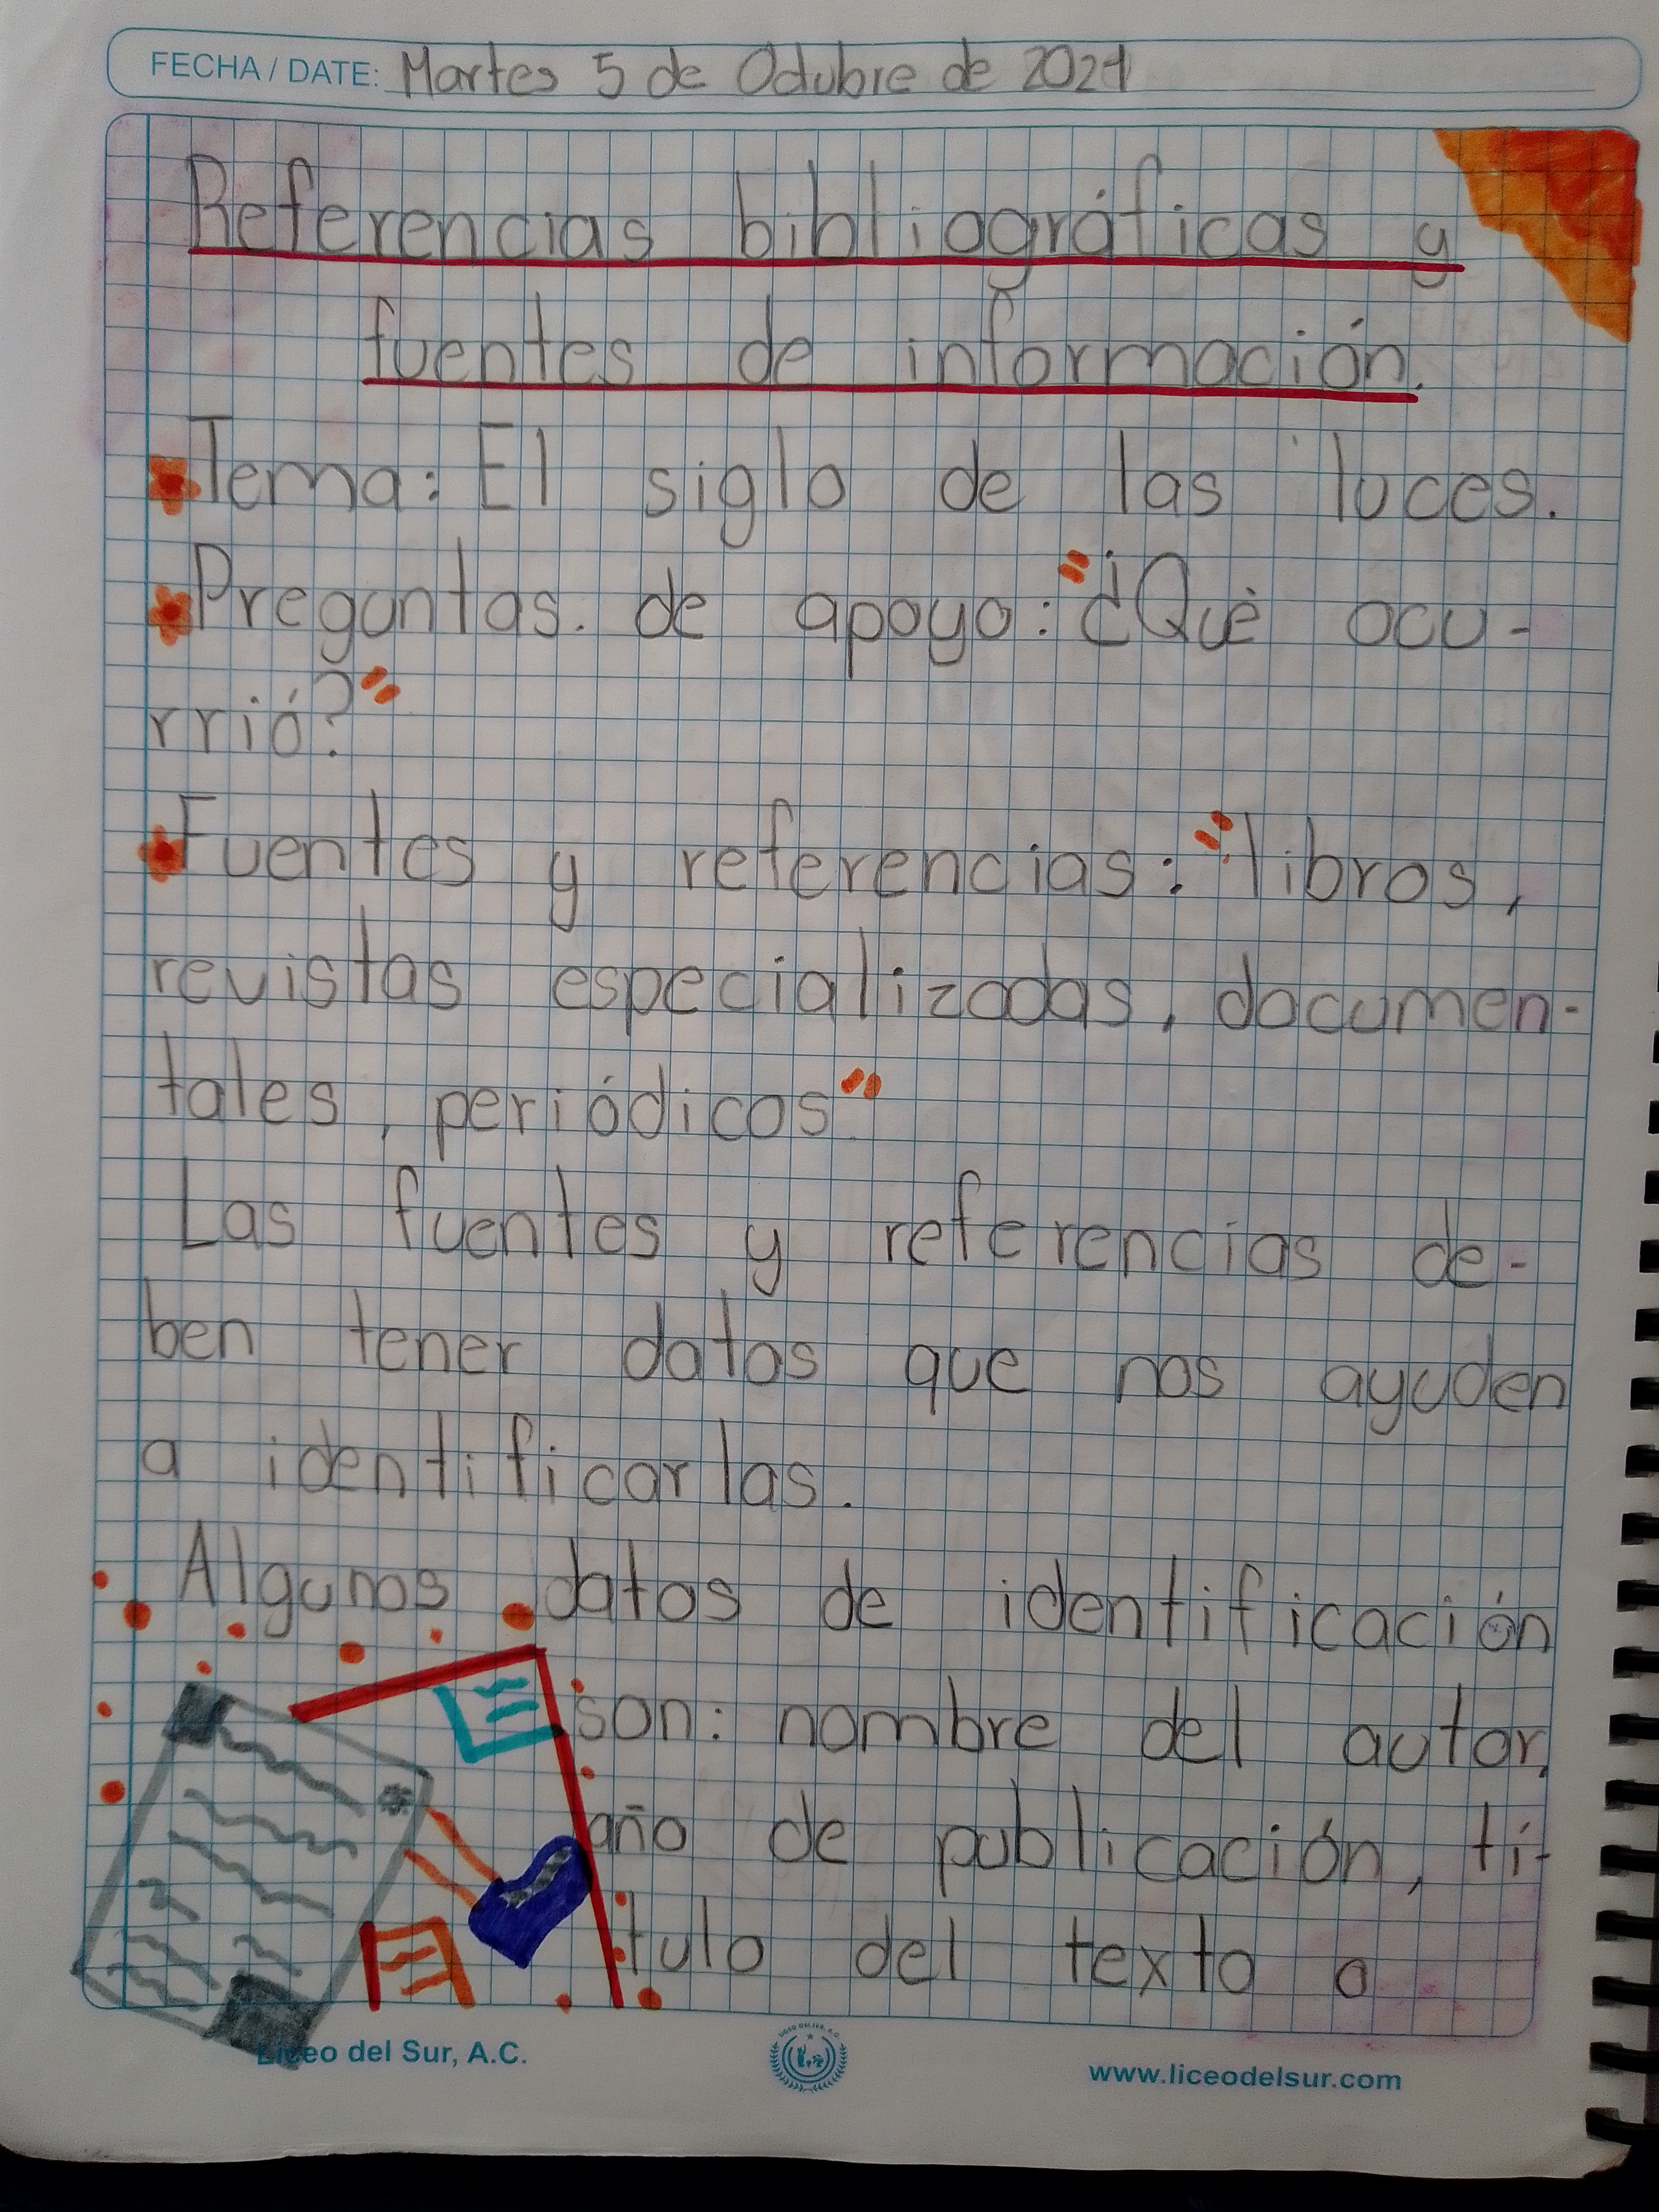 FECHA / DATE: Martes 5 de Octubre de 2021
Referencias bibliográficas y
fuentes de información.
Tema: El siglo de las luces.
Preguntas. de apoyo: "¿Qué ocu-
rrió?"
Fuentes y referencias: "libros,
revistas especializadas, documen-
tales, periódicos"
Las fuentes y referencias de-
ben tener datos que nos ayuden
a identificarlas.
Algunos datos de identificación
son: nombre del autor,
año de publicación, tí-
tulo del texto o
Liceo del Sur, A.C.
www.liceodelsur.com